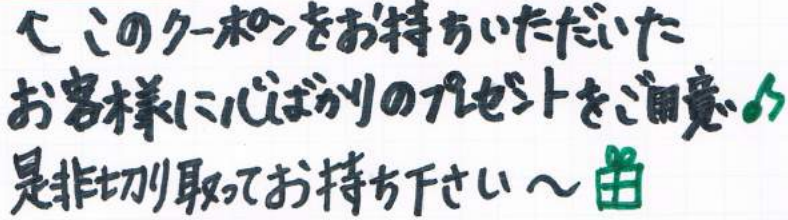 ↖ このクーポンをお持ちいただいた
お客様に心ばかりのプレゼントをご用意♪
是非切り取ってお持ち下さい～